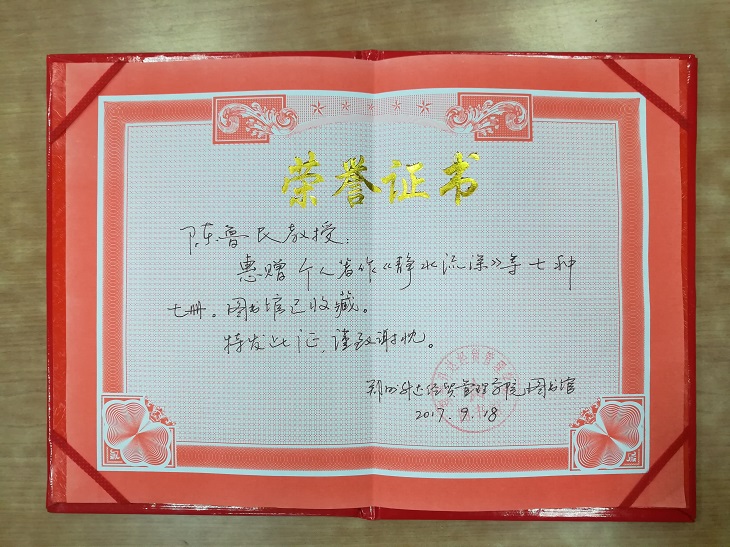 荣誉证书
陈鲁民教授：
惠赠个人著作《静水流深》等七种
七册。图书馆已收藏。
特发此证，谨致谢忱。
郑州升达经贸管理学院图书馆
2017.9.18